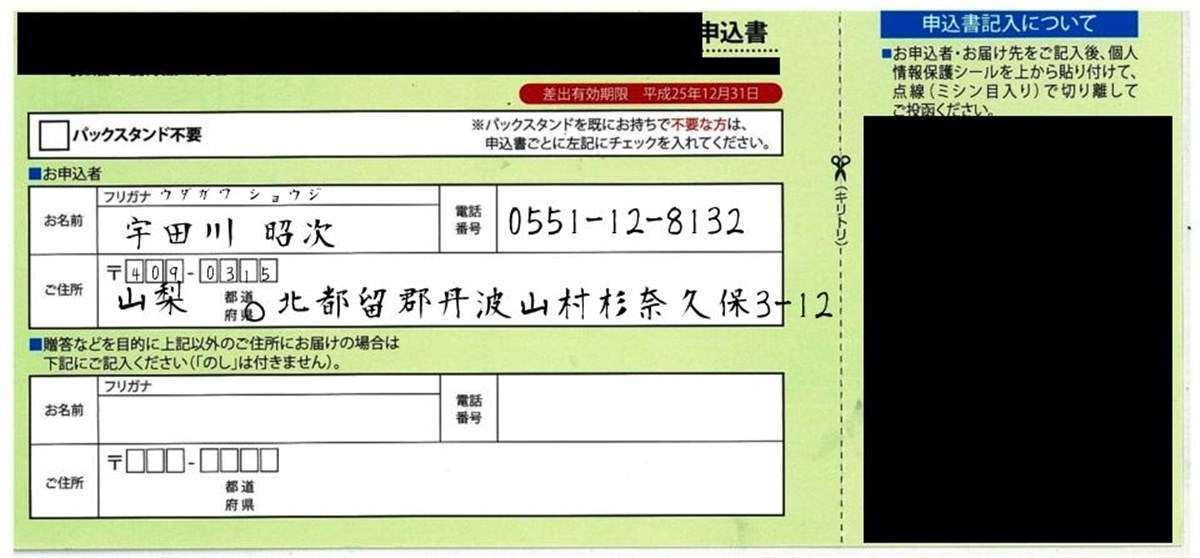 申込書
差出有効期限 平成25年12月31日
パックスタンド不要
※パックスタンドを既にお持ちで不要な方は、
申込書ごとに左記にチェックを入れてください。
■お申込者
フリガナ ウダガワ ショウジ
お名前 宇田川 昭次
電話番号 0551-12-8132
ご住所 〒409-0315
山梨 都道府県 北都留郡丹波山村杉奈久保3-12
■贈答などを目的に上記以外のご住所にお届けの場合は
下記にご記入ください(「のし」は付きません)。
フリガナ
お名前
電話番号
ご住所 〒 -
都道府県
(キリトリ)
申込書記入について
■お申込者・お届け先をご記入後、個人
情報保護シールを上から貼り付けて、
点線(ミシン目入り)で切り離して
ご投函ください。